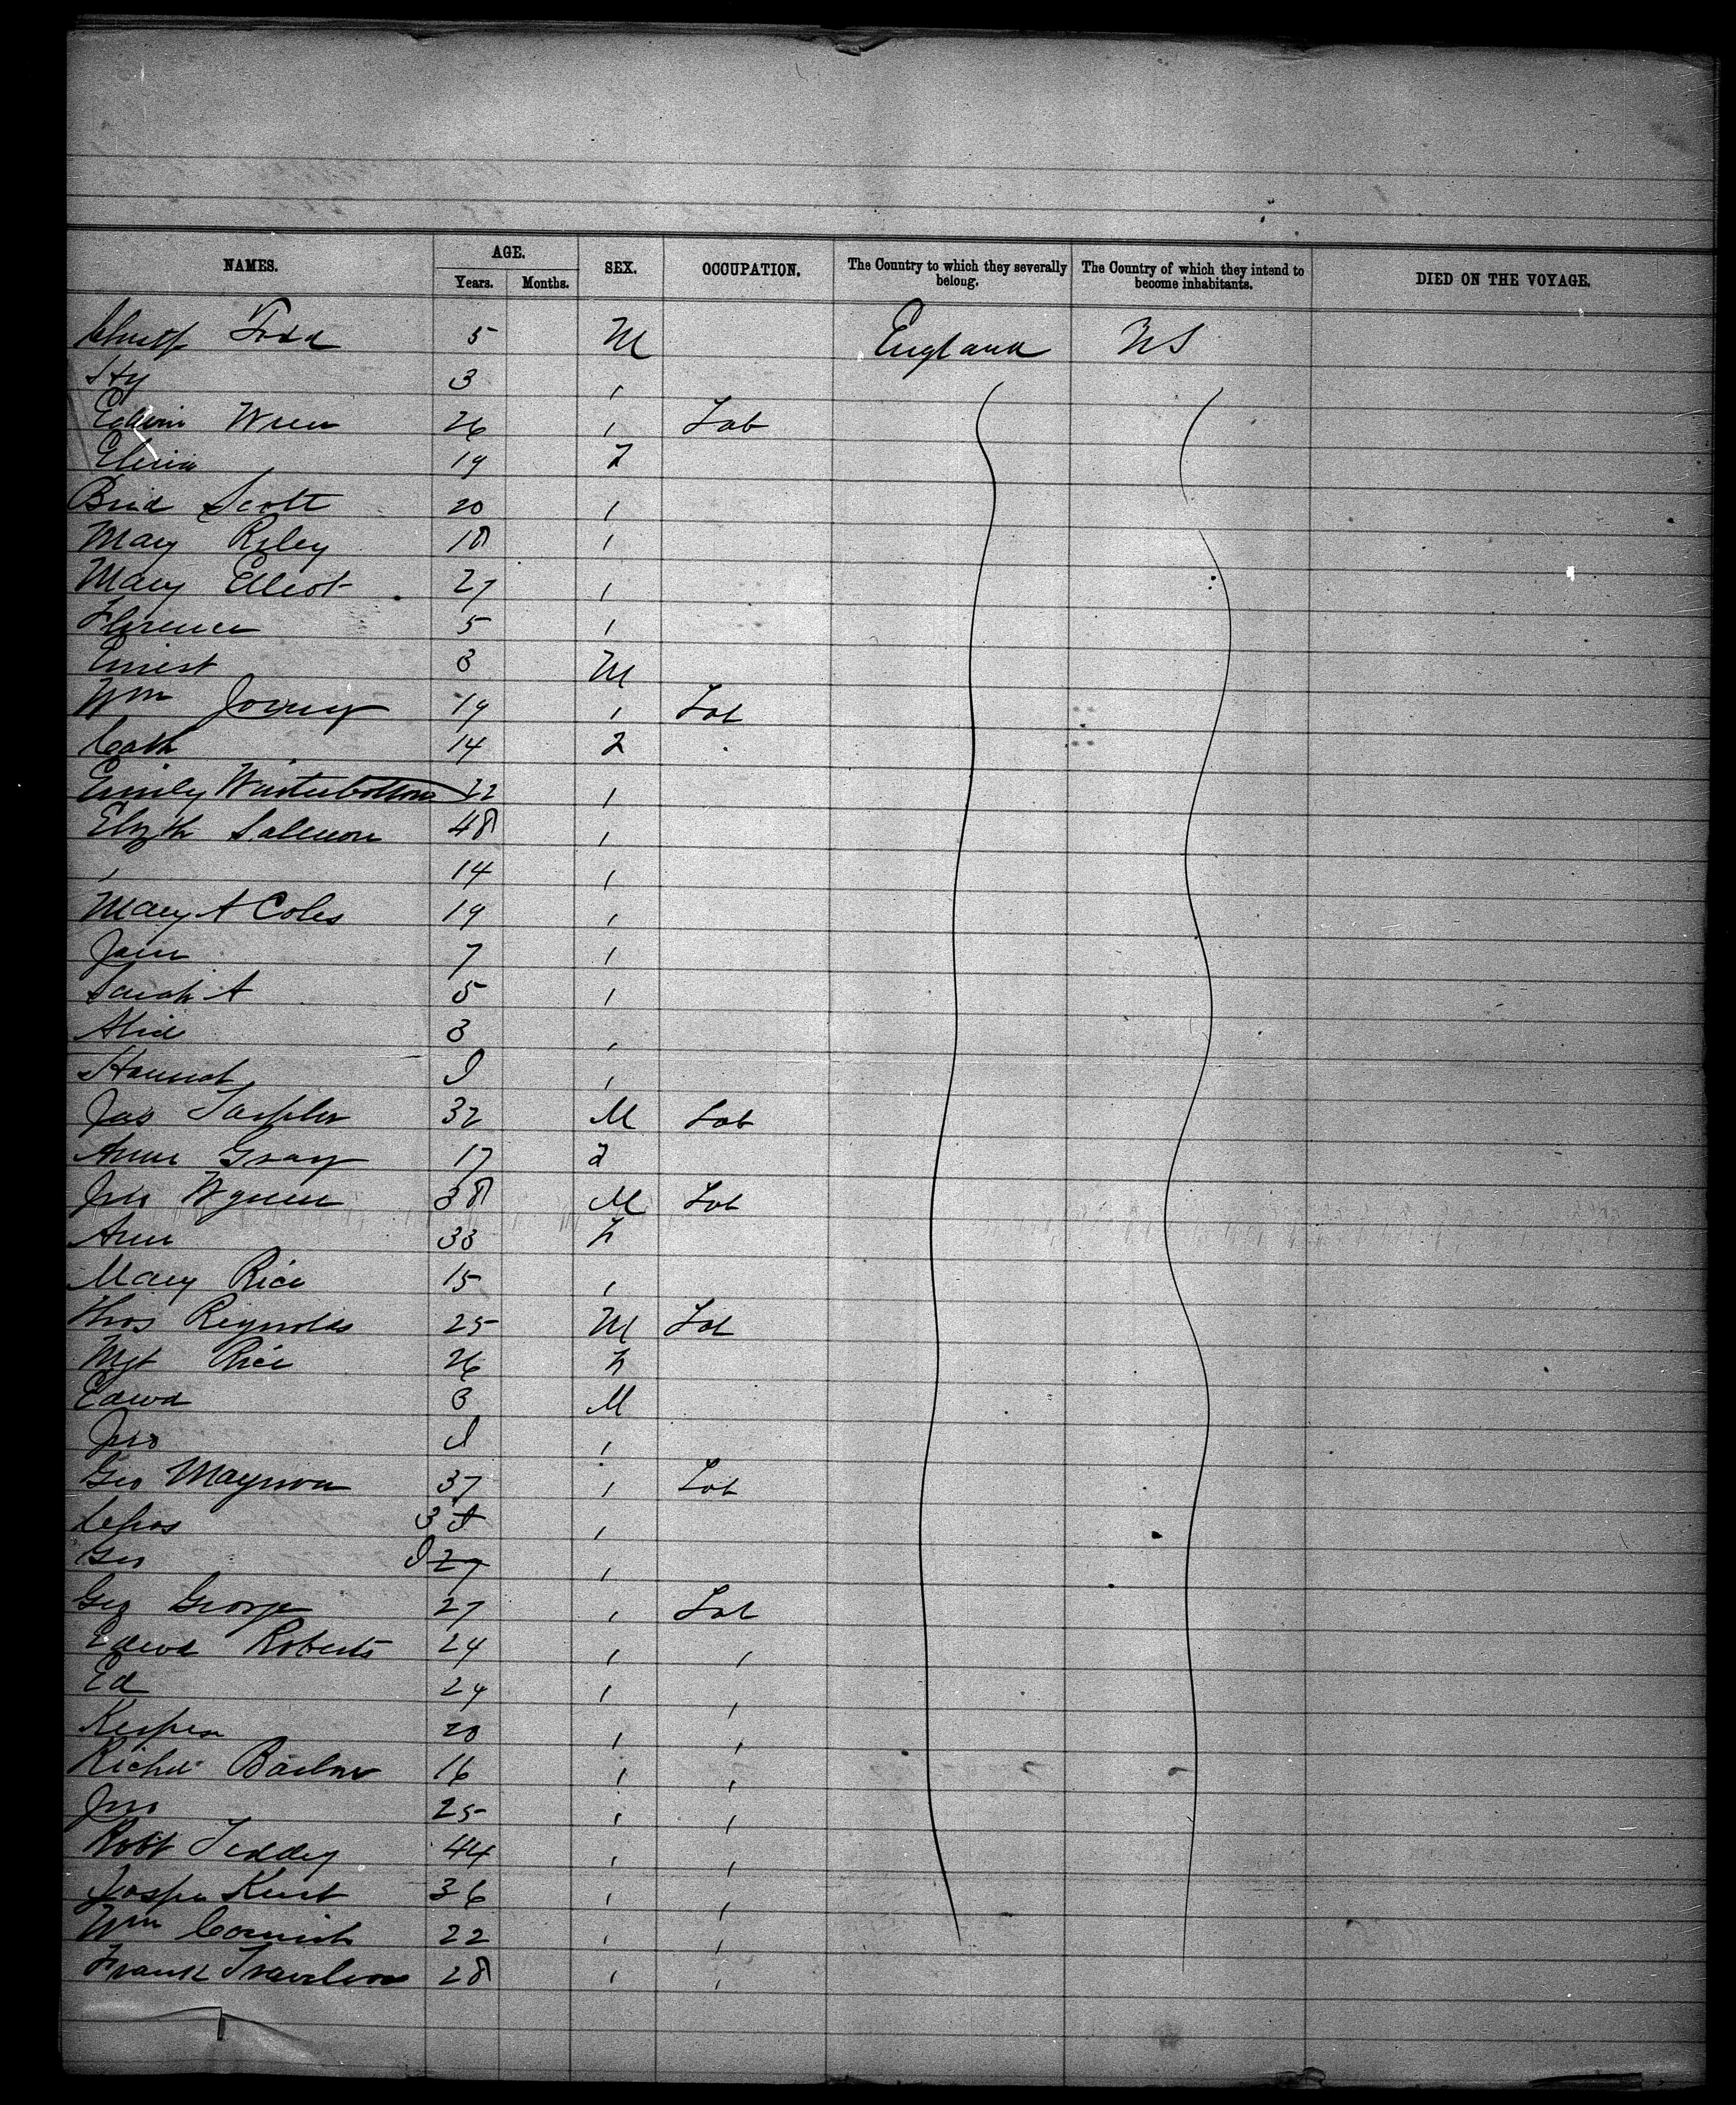 NAMES. AGE. SEX. OCCUPATION. The Country to which they severally belong. The Country of which they intend to become inhabitants. DIED ON THE VOYAGE.
Years. Months.
Todd 5 M England US
Hy 3 ,
Edwin Wren 26 , Lab
Eliza 19 F
Brid Scott 20 ,
Mary Riley 18 ,
Mary Elliot 27 ,
Florence 5 ,
Ernest 3 M
Wm 19 , Lab
Cath 14 F
Emily Winterbottom 22 ,
Elizth Salmon 48 ,
, 14 ,
Mary A Coles 19 ,
Jane 7 ,
Sarah A 5 ,
Alice 3 ,
Hannah ,
Jas 32 M Lab
Anne Gray 17 F
Jno 38 M Lab
Ann 33 F
Mary Rice 15 ,
Thos Reynolds 25 M Lab
Mgt Rice 26 F
Edwd 3 M
Jno ,
Geo 37 , Lab
Chas 3 ,
Geo 27 ,
Geo George 27 , Lab
Edwd Roberts 24 , ,
Ed 24 , ,
20 , ,
Richd Barlow 16 , ,
Jno 25 , ,
Robt Teddy 44 , ,
Kent 36 , ,
Wm Cornish 22 , ,
Frank 28 , ,